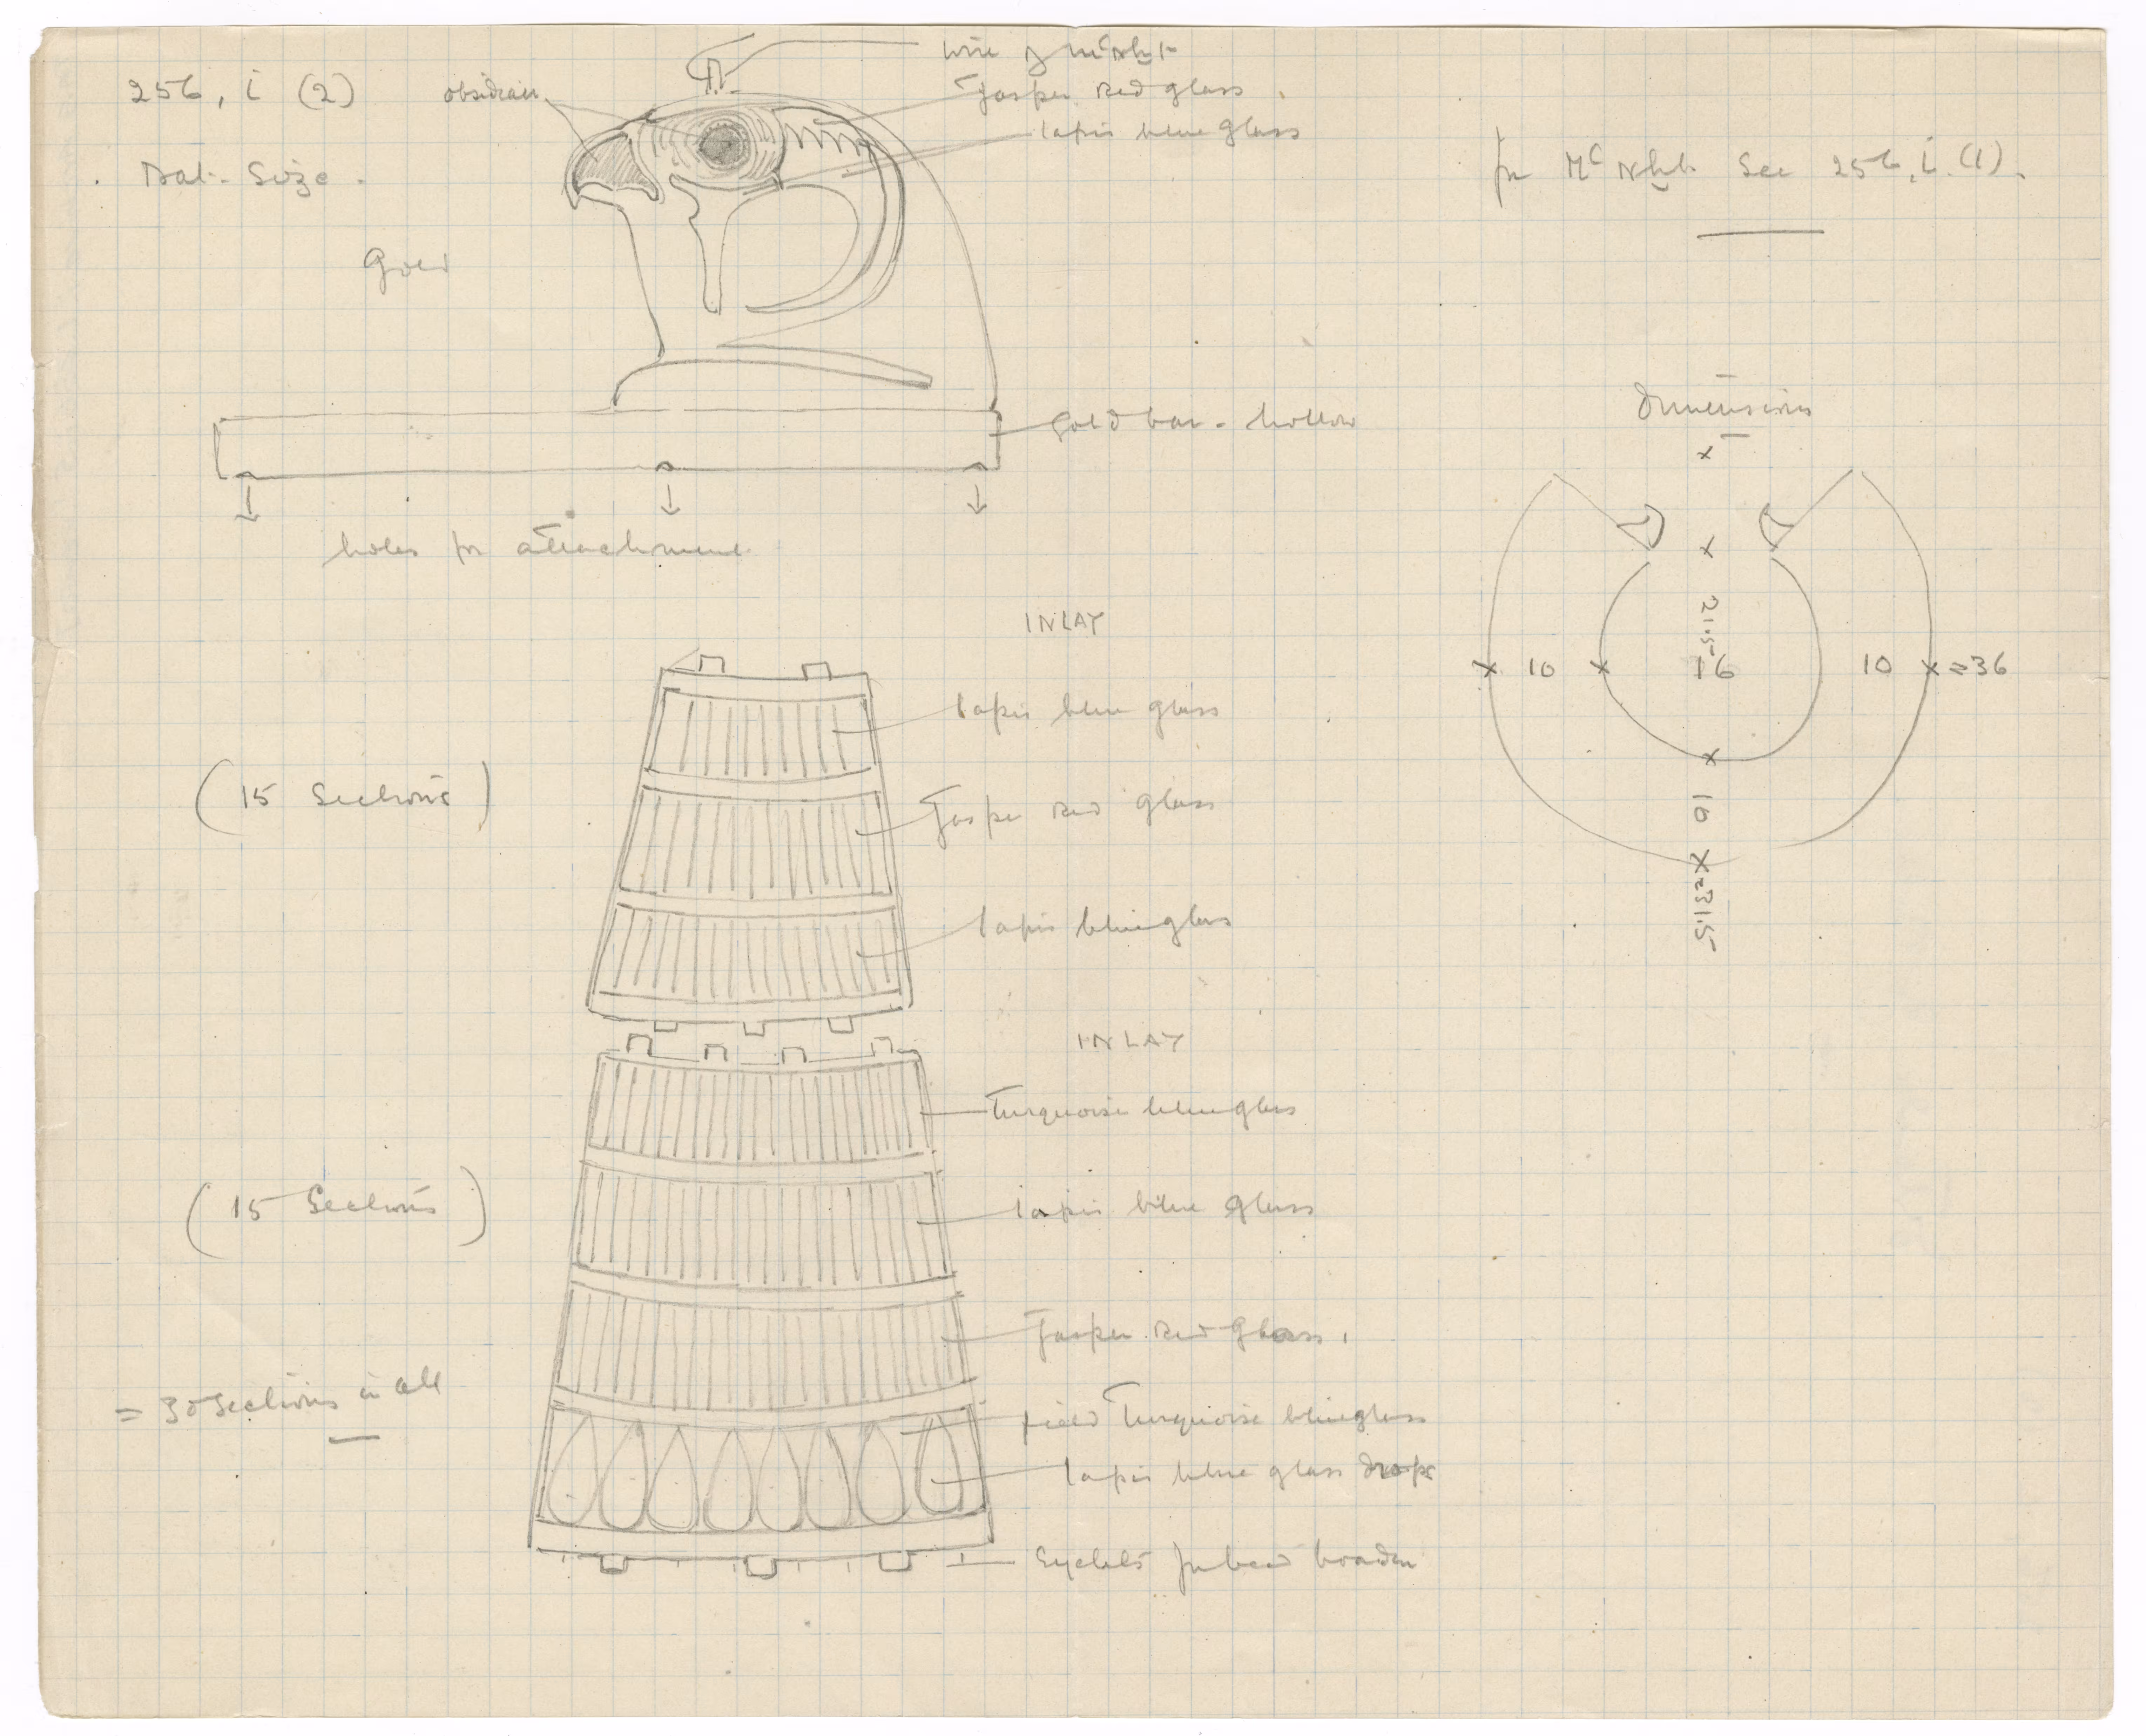 256, i (2)
Nat. Size.
Gold
obsidian
wire of mᶜnḫt
Jasper red glass.
lapis blue glass
for Mᶜnḫt. See 256, i. (1).
Gold bar - hollow
holes for attachment
Dimensions
21·5
10
16
10
=36
10
=31·5
INLAY
(15 Sections)
lapis blue glass
Jasper red glass
lapis blue glass
INLAY
(15 Sections)
Turquoise blue glass
lapis blue glass
Jasper red glass.
= 30 Sections in all
field Turquoise blue glass
lapis blue glass drops
Eyelets for bead border